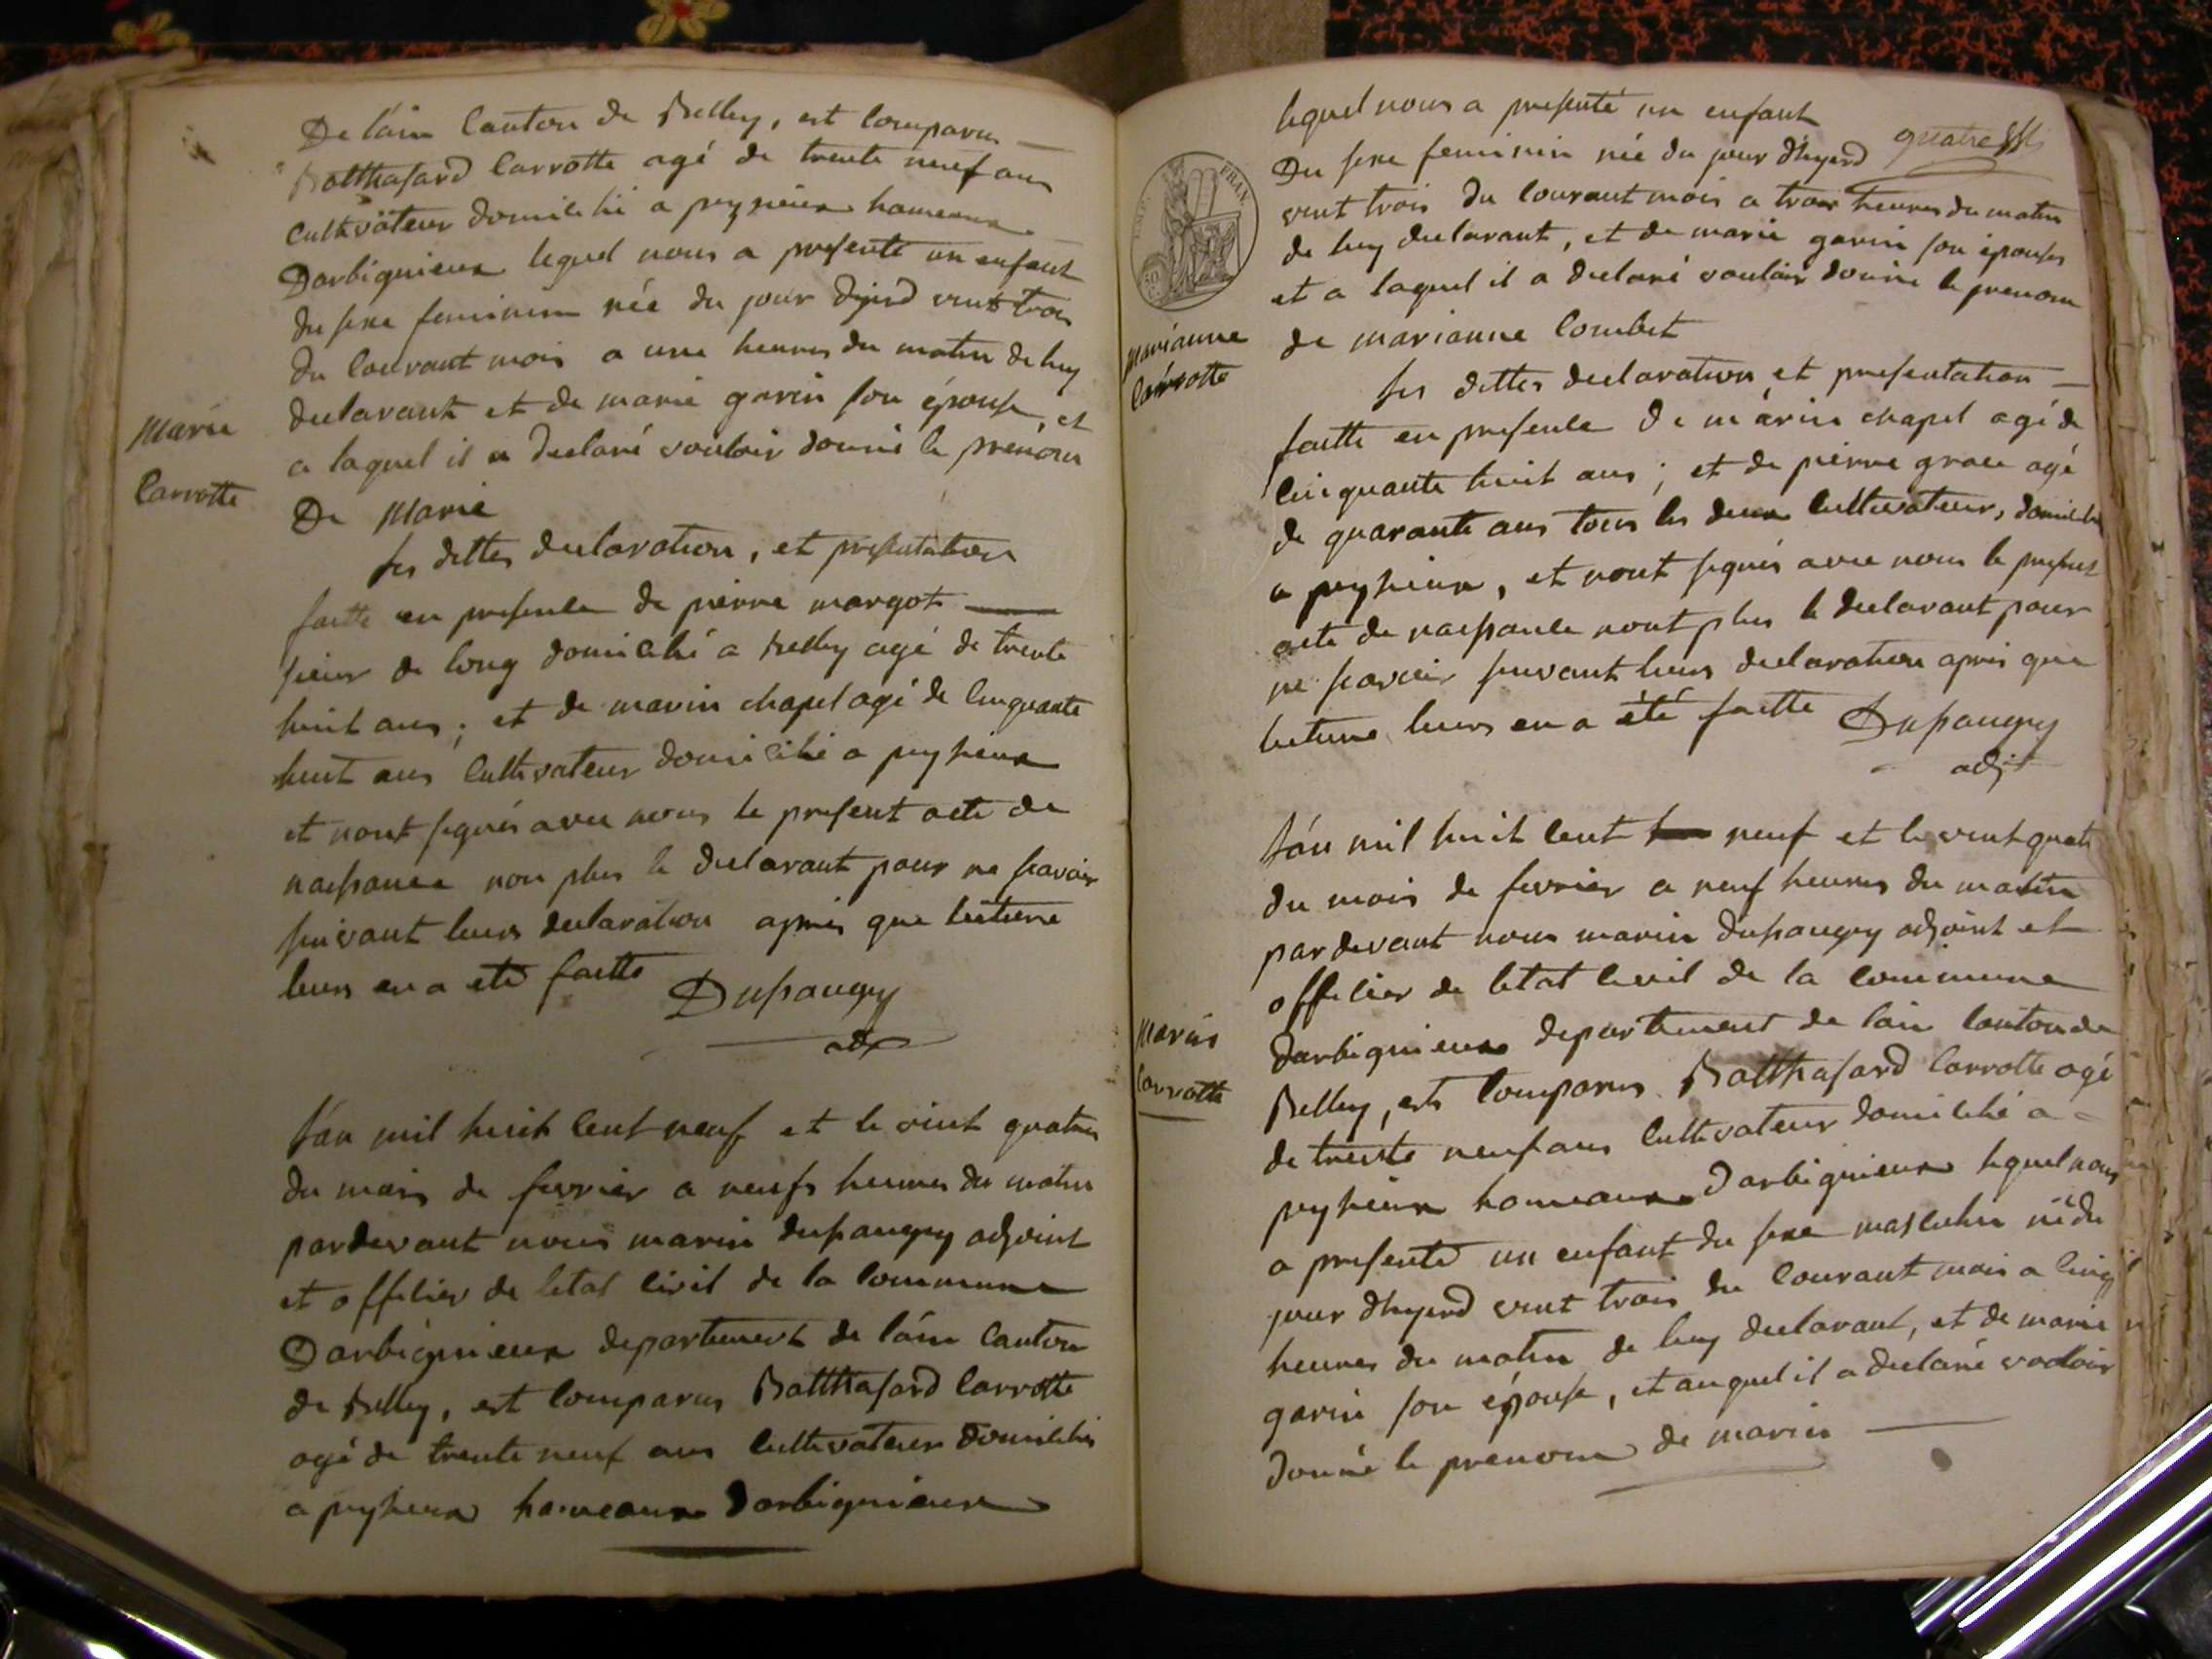 De l'ain Canton de Belley, est Comparus
Balthasard Carrotte agé de trente neuf ans
Cultivateur domicilié a peyzieux hameaux
Darbignieux lequel nous a presenté un enfant
du sexe feminin née du jour dyerd vent trois
du Courant mois a une heures du matin de luy
declarant et de marie garin son épouse, et
a laquel il a declaré vouloir donné le prenom
De Marie
Marie
Carrotte
les dittes declaration, et presentation
faitte en presence de pierre margot
sieur de long domicilié a Belley agé de trente
huit ans; et de marin chapel agé de Cinquante
huit ans Cultivateur domicilié a peyzieux
et n'ont signés avec nous le present acte de
naissance non plus le declarant pour ne scavoir
suivant leurs declaration apres que lecture
leurs en a eté faitte Dupaugey
adj
l'an mil huit Cent neuf et le vint quatres
du mois de fevrier a neufs heures du matin
pardevant nous marin dupaugey adjoint
et officier de letat Civil de la Commune
Darbignieux departement de l'ain Canton
de Belley, est Comparus Balthasard Carrotte
agé de trente neuf ans Cultivateur domiciliés
a peyzieux hameaux Darbignieux
lequel nous a presenté un enfant
quatre
FRAN.
50
Du sexe feminin née du jour d'hyerd
vent trois du Courant mois a trois heures du matin
de luy declarant, et de marie garin son épouses
et a laquel il a declaré vouloir donné le prenom
de marianne Combet
marianne
Carrotte
les dittes declaration et presentation
faitte en presence de marin chapel agé de
Cinquante huit ans; et de pierre grace agé
de quarante ans tous les deux Cultivateurs, domicilié
a peyzieux, et n'ont signés avec nous le present
acte de naissance nont plus le declarant pour
ne scavoir suivant leurs declaration apres que
lecture leurs en a été faitte Dupaugey
adj
l'an mil huit Cent neuf et le vent quatr
du mois de fevrier a neuf heures du matin
pardevant nous marin dupaugey adjoint et
officier de letat Civil de la Commune
Darbignieux departement de l'ain Canton de
Belley, est Comparus Balthasard Carrotte agé
Marin
Carrotte
de trente neuf ans Cultivateur domicilié a
peyzieux hameaux Darbignieux lequel nous
a presenté un enfant du sexe masculin né du
jour d'hyerd vent trois du Courant mois a Cinq
heures du matin de luy declarant, et de marie
garin son épouse, et auquel il a declaré vouloir
donné le prenom de marin